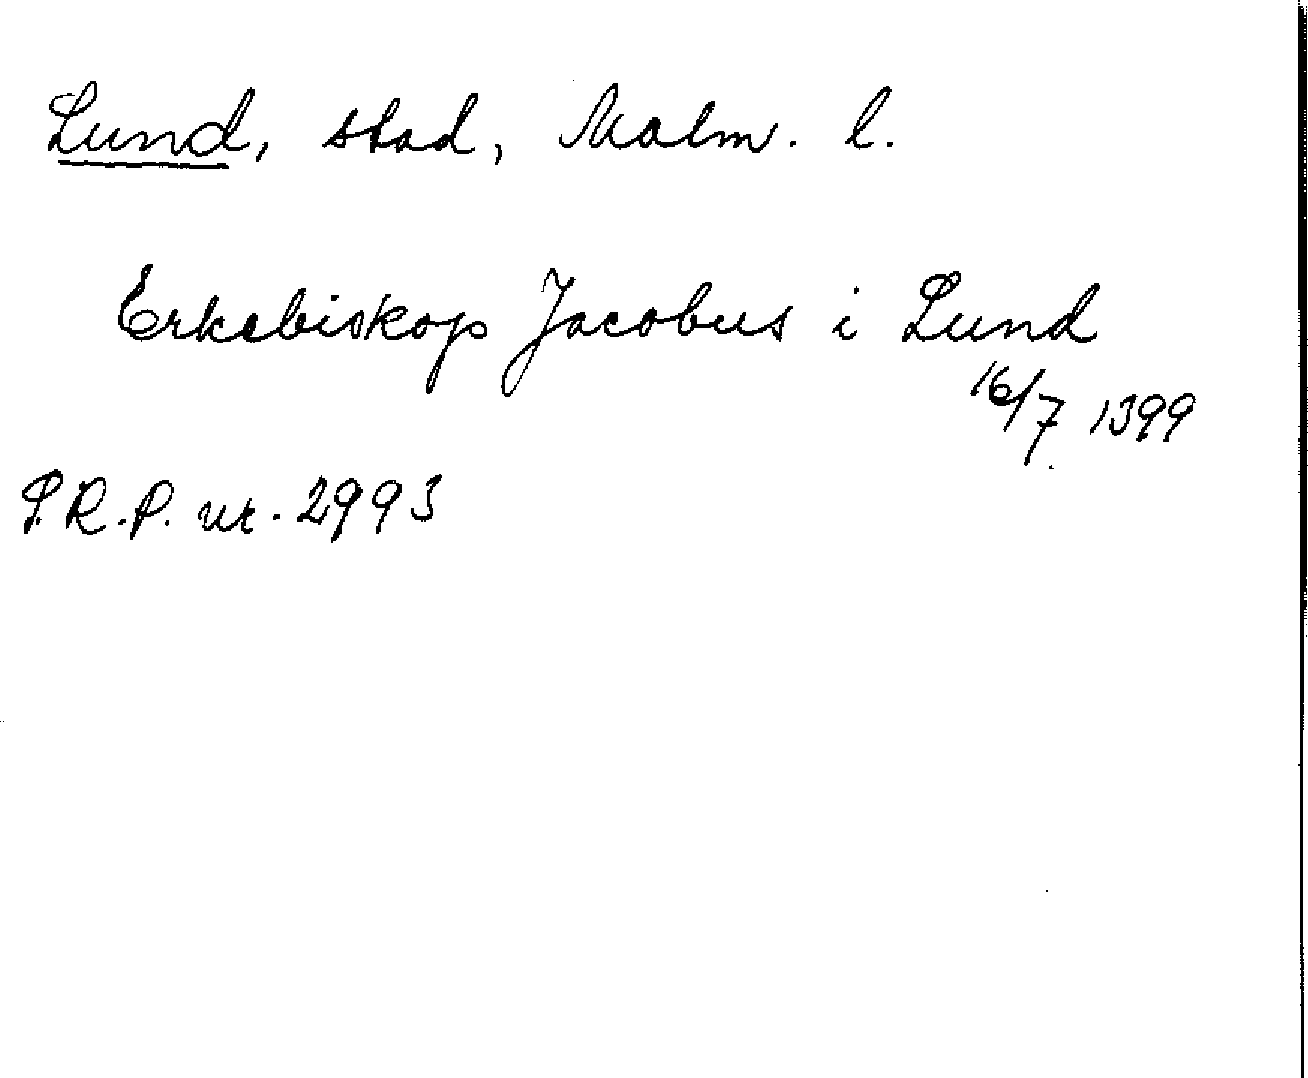 Lund, stad, Malm. l.
Erkebiskop Jacobus i Lund
16/7 1399
S.R.P. nr. 2993